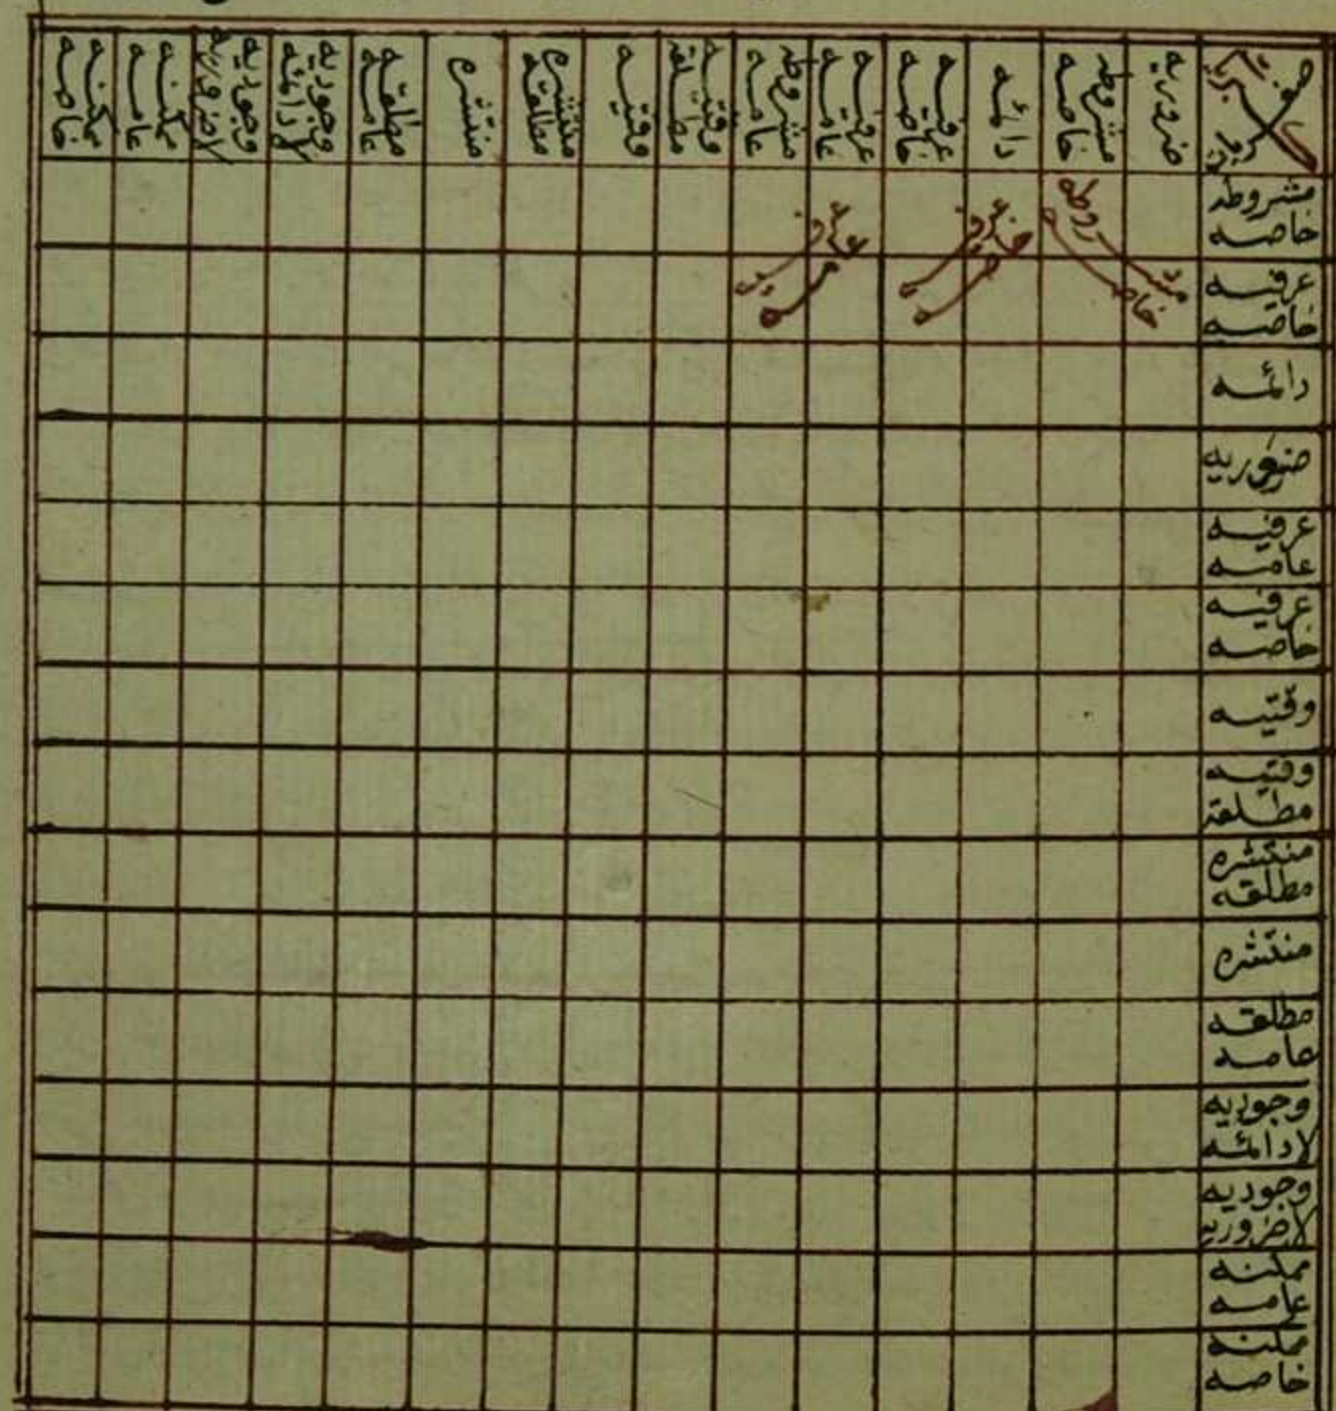 ضروريه
مشروطه خاصه
دائمه
عرفيه خاصه
عرفيه عامه
مشروطه عامه
وقتيه مطلقه
وقتيه
منتشره مطلقه
منتشره
مطلقه عامه
وجوديه لادائمه
وجوديه لاضروريه
ممكنه عامه
ممكنه خاصه
مشروطه
خاصه
عرفيه
خاصه
دائمه
ضروريه
عرفيه
عامه
عرفيه
خاصه
وقتيه
وقتيه
مطلقه
منتشره
مطلقه
منتشره
مطلقه
عامه
وجوديه
لادائمه
وجوديه
لاضروريه
ممكنه
عامه
ممكنه
خاصه